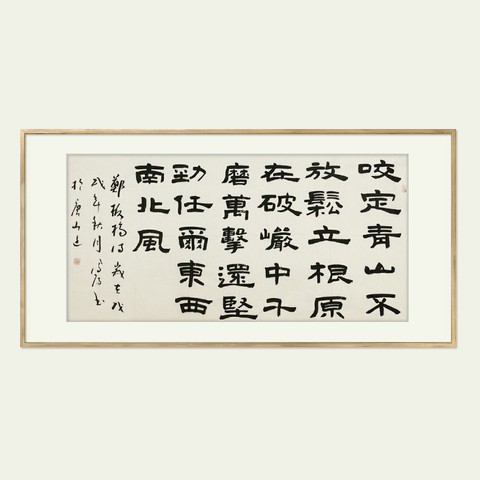 咬定青山不
放鬆立根原
在破巖中千
磨萬擊還堅
勁任爾東西
南北風
鄭板橋詩歲在戊
戌年秋月書
於唐山